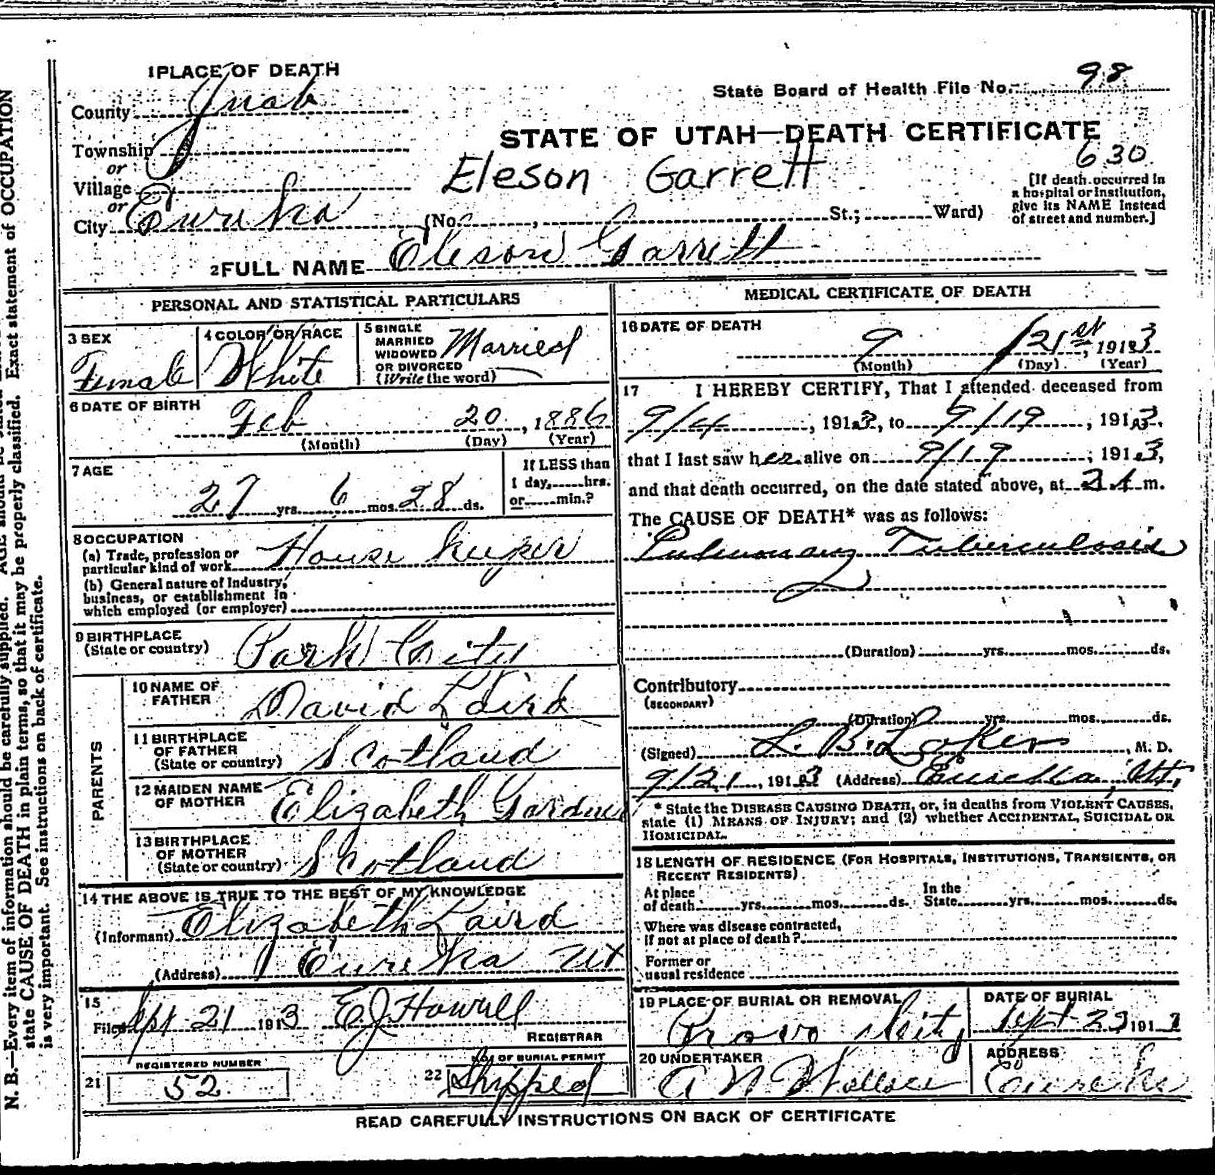 1 PLACE OF DEATH
County Juab
Township
or
Village
or
City Eureka (No. St.; Ward)
State Board of Health File No. 98
STATE OF UTAH—DEATH CERTIFICATE
630
Eleson Garrett
[If death occurred in
a hospital or institution,
give its NAME instead
of street and number.]
2 FULL NAME Eleson Garrett
PERSONAL AND STATISTICAL PARTICULARS
3 SEX
Female
4 COLOR OR RACE
White
5 SINGLE
MARRIED
WIDOWED
OR DIVORCED
(Write the word)
Married
6 DATE OF BIRTH
Feb 20, 1886
(Month) (Day) (Year)
7 AGE
27 yrs. 6 mos. 28 ds.
If LESS than
1 day, hrs.
or min.?
8 OCCUPATION
(a) Trade, profession or
particular kind of work House Keeper
(b) General nature of Industry,
business, or establishment in
which employed (or employer)
9 BIRTHPLACE
(State or country) Park City
PARENTS
10 NAME OF
FATHER David Laird
11 BIRTHPLACE
OF FATHER
(State or country) Scotland
12 MAIDEN NAME
OF MOTHER Elizabeth Gardner
13 BIRTHPLACE
OF MOTHER
(State or country) Scotland
14 THE ABOVE IS TRUE TO THE BEST OF MY KNOWLEDGE
(Informant) Elizabeth Laird
(Address) Eureka Ut
15
Filed Sept 21 1913 E J Howell
REGISTRAR
REGISTERED NUMBER
21 52
No. OF BURIAL PERMIT
22 Shipped
MEDICAL CERTIFICATE OF DEATH
16 DATE OF DEATH
9 21st, 1913
(Month) (Day) (Year)
17 I HEREBY CERTIFY, That I attended deceased from
9/4, 1913, to 9/19, 1913,
that I last saw her alive on 9/19, 1913,
and that death occurred, on the date stated above, at m.
The CAUSE OF DEATH* was as follows:
Pulmonary Tuberculosis
(Duration) yrs. mos. ds.
Contributory
(SECONDARY)
(Duration) yrs. mos. ds.
(Signed) L. B. , M. D.
9/21, 1913 (Address) Eureka, Ut.
* State the DISEASE CAUSING DEATH, or, in deaths from VIOLENT CAUSES,
state (1) MEANS OF INJURY; and (2) whether ACCIDENTAL, SUICIDAL OR
HOMICIDAL.
18 LENGTH OF RESIDENCE (FOR HOSPITALS, INSTITUTIONS, TRANSIENTS, OR
RECENT RESIDENTS)
At place
of death yrs. mos. ds.
In the
State yrs. mos. ds.
Where was disease contracted,
if not at place of death?
Former or
usual residence
19 PLACE OF BURIAL OR REMOVAL
Provo City
DATE OF BURIAL
Sept 23 191
20 UNDERTAKER
A N Wallace
ADDRESS
Eureka
READ CAREFULLY INSTRUCTIONS ON BACK OF CERTIFICATE
N. B.—Every item of information should be carefully supplied. AGE should be stated Exact statement of OCCUPATION
state CAUSE OF DEATH in plain terms, so that it may be properly classified.
is very important. See instructions on back of certificate.